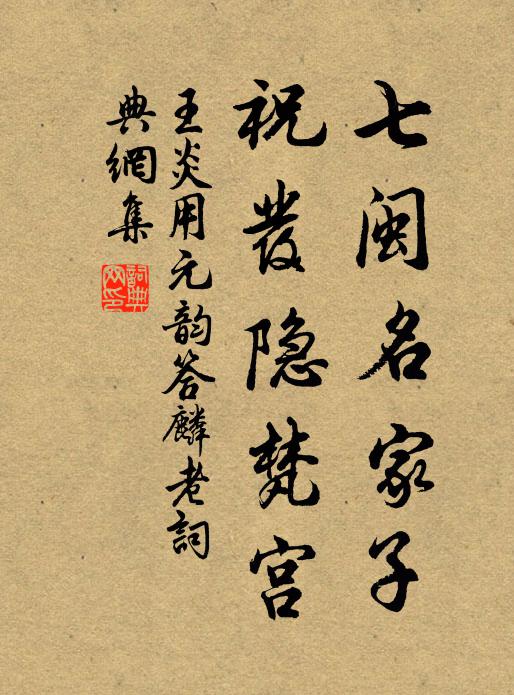 七闽名家子
祝发隐梵宫
王炎用元韵答麟老詞
典網集
詞典网印